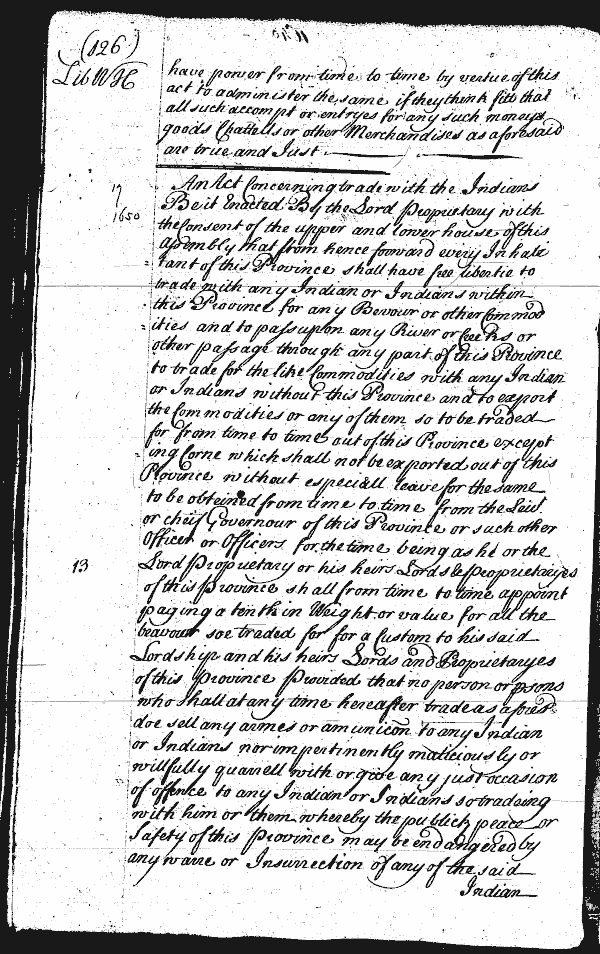 (126)
Lib WH
have power from time to time by vertue of this
act to administer the same if they think fitt that
all such accompt or entryes for any such moneys
goods Chattells or other Merchandises as aforesaid
are true and Just
17
1650
An Act Concerning trade with the Indians
Be it Enacted By the Lord Propriettary with
the Consent of the upper and lower house of this
Assembly that from hence forward every Inhabi
tant of this Province shall have free libertie to
trade with any Indian or Indians within
this Province for any Bevour or other Commod
ities and to pass upon any River or Creeks or
other passage through any part of this Province
to trade for the like Commodities with any Indian
or Indians without this Province and to export
the Commodities or any of them so to be traded
for from time to time out of this Province except
ing Corne which shall not be exported out of this
Province without especiall leave for the same
to be obteined from time to time from the Leivt
or cheif Governour of this Province or such other
Officer or Officers for the time being as he or the
13
Lord Proprietary or his heirs Lords & Proprietaryes
of this Province shall from time to time appoint
paying a tenth in Weight or value for all the
beavour soe traded for for a Custom to his said
Lordship and his heirs Lords and Proprietaryes
of this Province Provided that no person or psons
who shall at any time hereafter trade as aforesd
doe sell any armes or amunicon to any Indian
or Indians nor impertinently maliciously or
willfully quarrell with or give any just occasion
of offence to any Indian or Indians so tradeing
with him or them whereby the publick peace or
Safety of this Province may be endangered by
any warre or Insurrection of any of the said
Indian